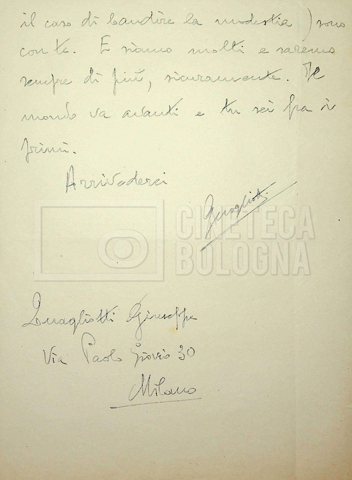 il caso di bandire la modestia) sono
con te. E siamo molti e saremo
sempre di più, sicuramente. Il
mondo va avanti e tu sei fra i
primi.
Arrivederci
Quagliotti
CINETECA
BOLOGNA
Quagliotti Giuseppe
Via Paolo Giovio 30
Milano